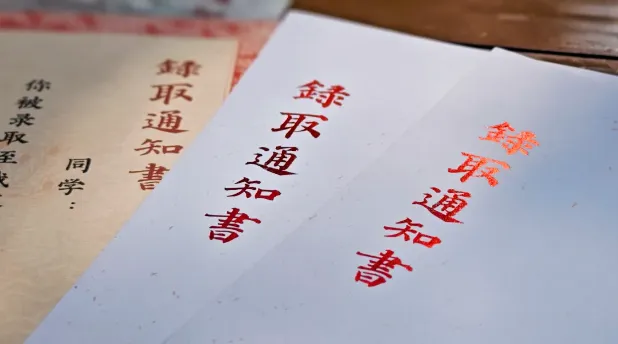 録取通知書
同学:
你被录取至
録取通知書
録取通知書